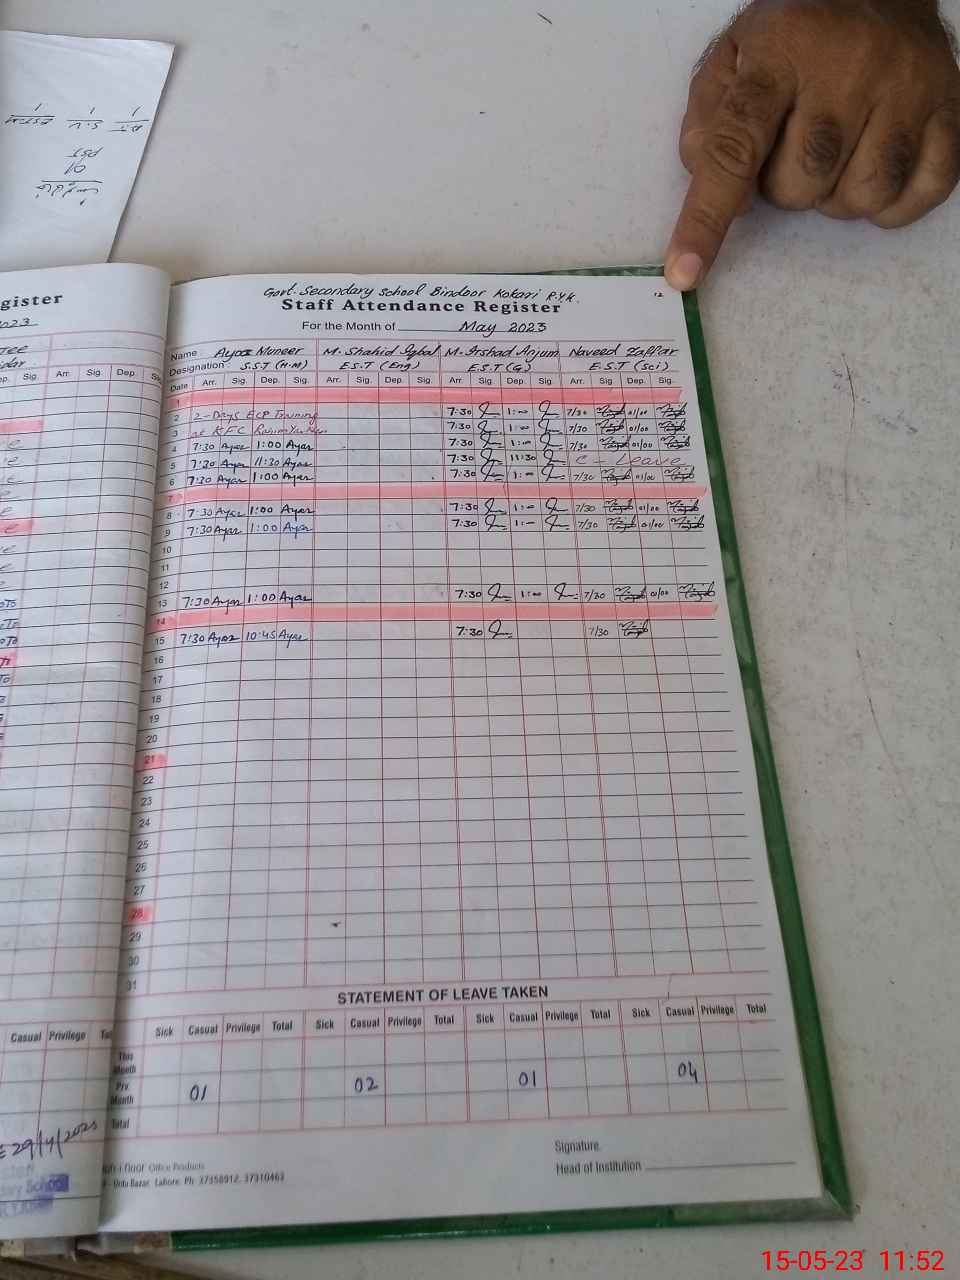 gister
Govt. Secondary School Bindoor Kokari R.Y.K.
12
Staff Attendance Register
For the Month of May 2023
Name: Ayaz Muneer M. Shahid Iqbal M. Irshad Anjum Naveed Zaffar
Designation: S.S.T (H.M) E.S.T (Eng) E.S.T (G) E.S.T (Sci)
Date Arr. Sig. Dep. Sig. Arr. Sig. Dep. Sig. Arr Sig. Dep. Sig. Arr. Sig. Dep. Sig.
1
2 2-Days ECP Training 7:30 1:00 7/30 01/00
3 at KFC 7:30 1:00 7/30 01/00
4 7:30 Ayaz 1:00 Ayaz 7:30 1:00 7/30 01/00
5 7:30 Ayaz 11:30 Ayaz 7:30 11:30 C - Leave
6 7:30 Ayaz 1:00 Ayaz 7:30 1:00 7/30 01/00
7
8 7:30 Ayaz 1:00 Ayaz 7:30 1:00 7/30 01/00
9 7:30 Ayaz 1:00 Ayaz 7:30 1:00 7/30 01/00
10
11
12
13 7:30 Ayaz 1:00 Ayaz 7:30 1:00 7/30 01/00
14
15 7:30 Ayaz 10:45 Ayaz 7:30 7/30
16
17
18
19
20
21
22
23
24
25
26
27
28
29
30
31
STATEMENT OF LEAVE TAKEN
Casual Privilege
Sick Casual Privilege Total Sick Casual Privilege Total Sick Casual Privilege Total Sick Casual Privilege Total
This Month
Prv. Month 01 02 01 04
Total
Signature.
Head of Institution
Office Products
Urdu Bazar, Lahore. Ph: 37358912, 37310463
15-05-23 11:52